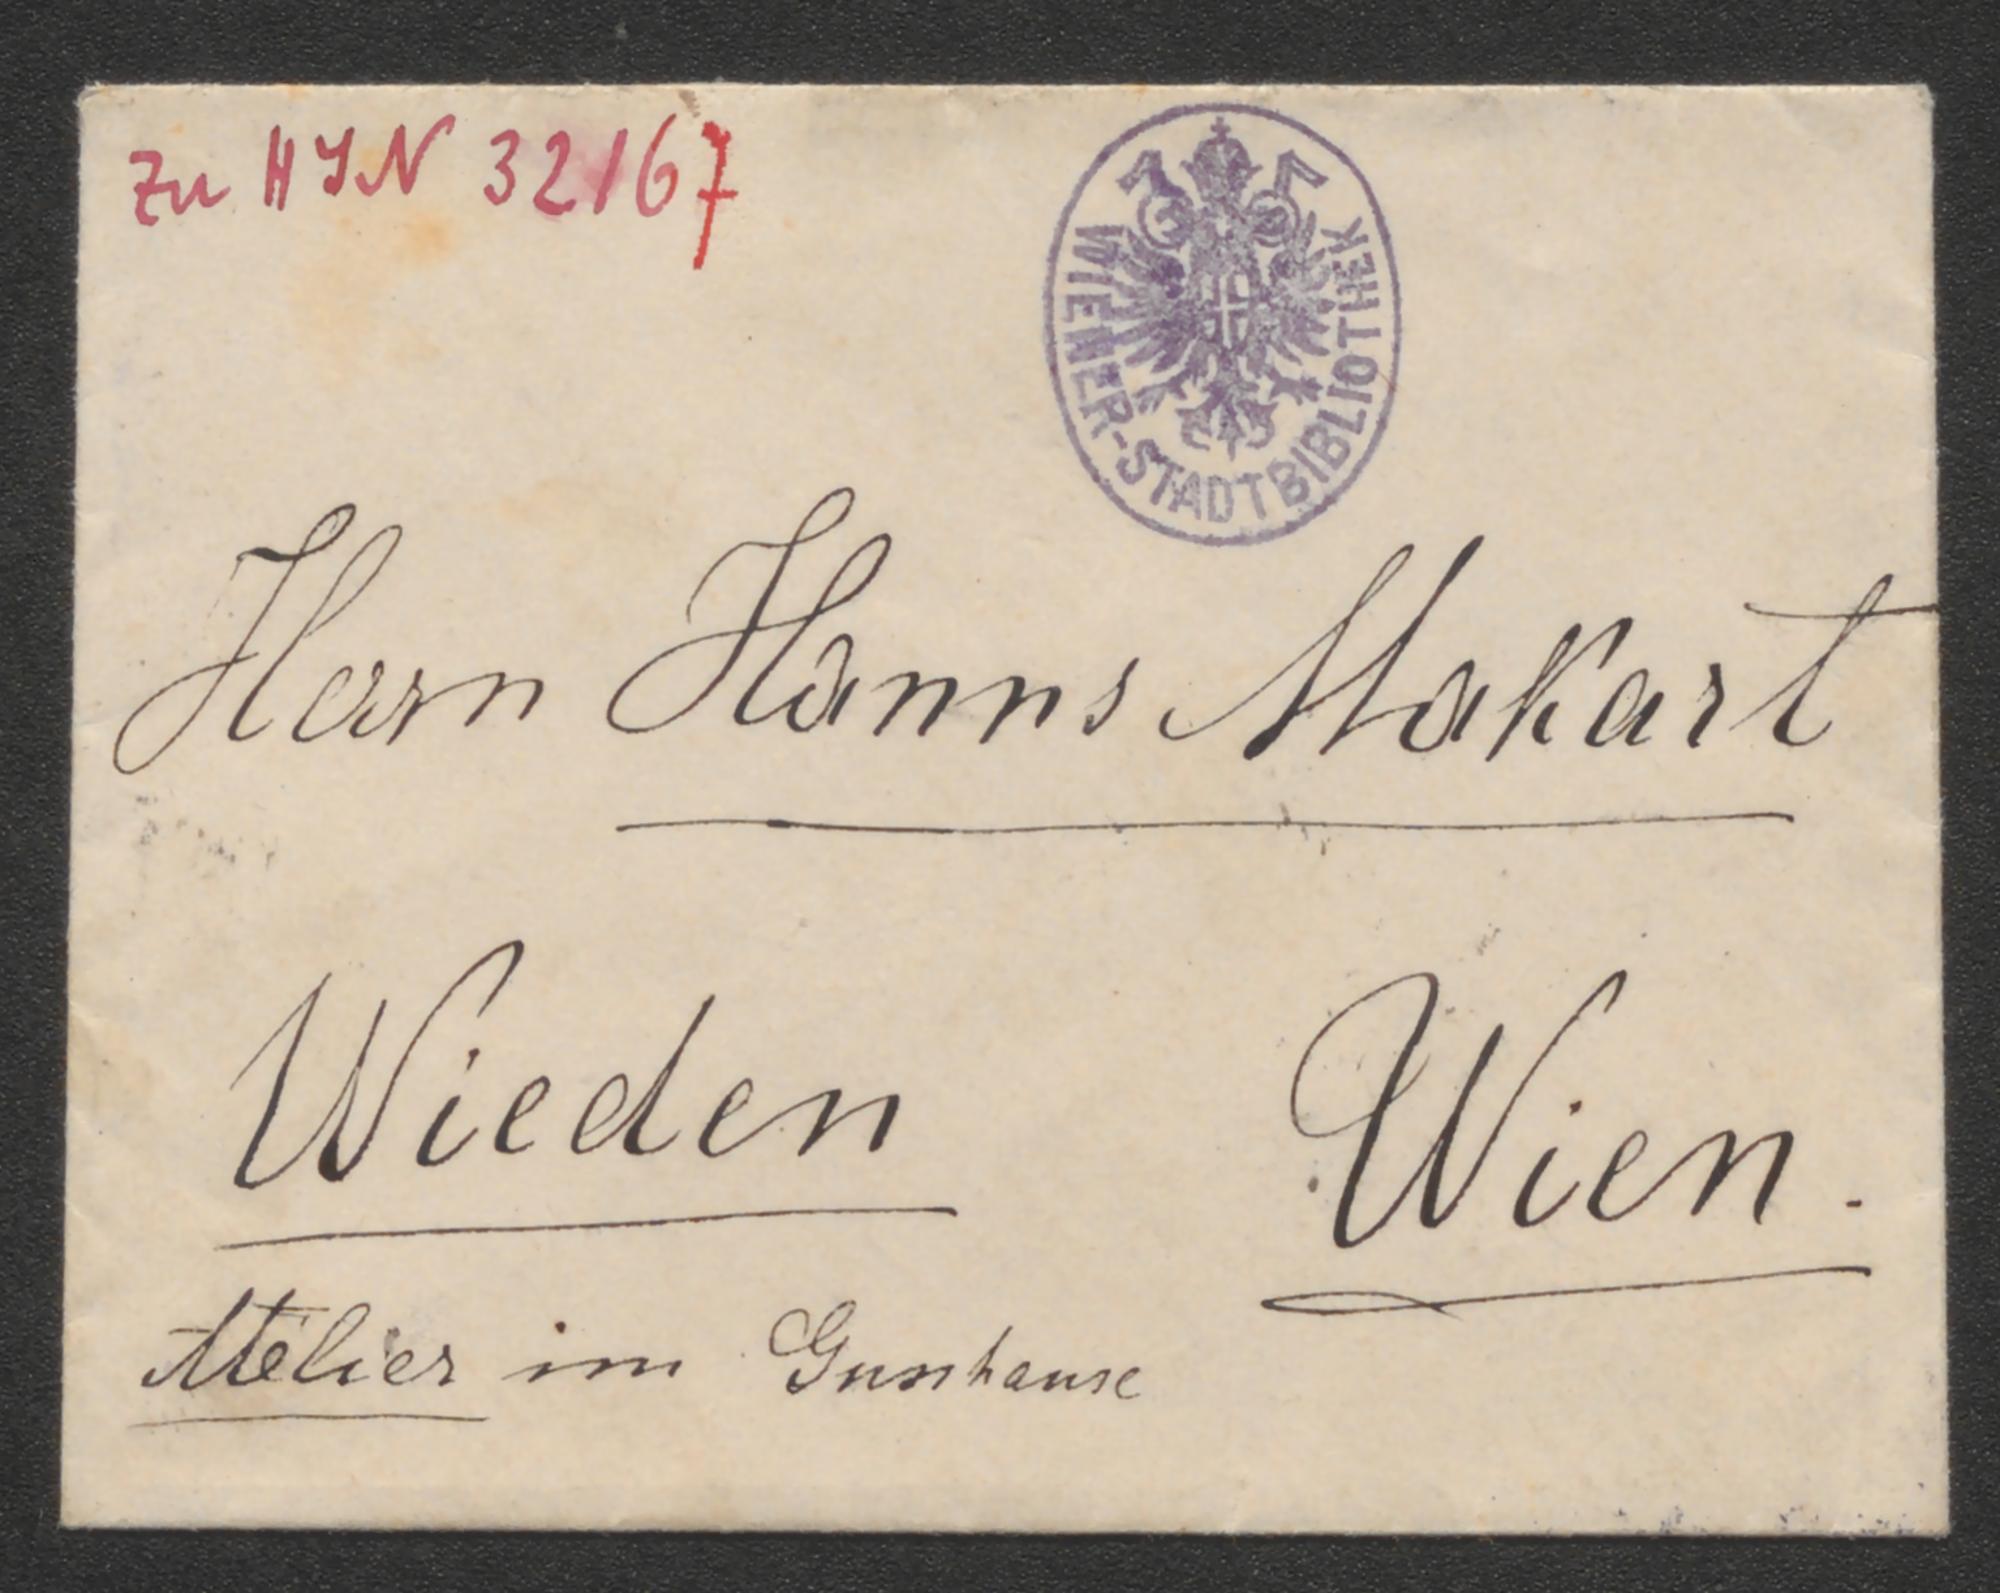 Zu HIN 32167
WIENER-STADTBIBLIOTHEK
Herrn Hanns Makart
Wieden
Wien.
Atelier im Gusshause